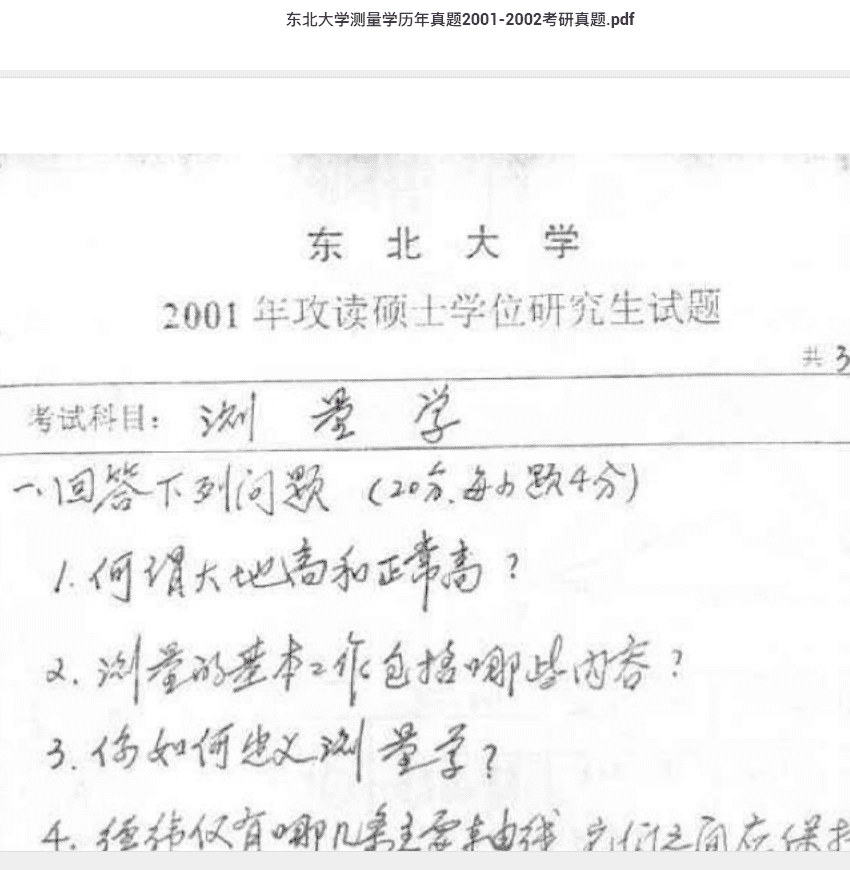 东北大学测量学历年真题2001-2002考研真题.pdf
东北大学
2001年攻读硕士学位研究生试题
共3
考试科目: 测量学
一、回答下列问题 (20分、每小题4分)
1. 何谓大地高和正常高?
2. 测量的基本工作包括哪些内容?
3. 你如何定义测量学?
4. 经纬仪有哪几条主要轴线 它们之间应保持